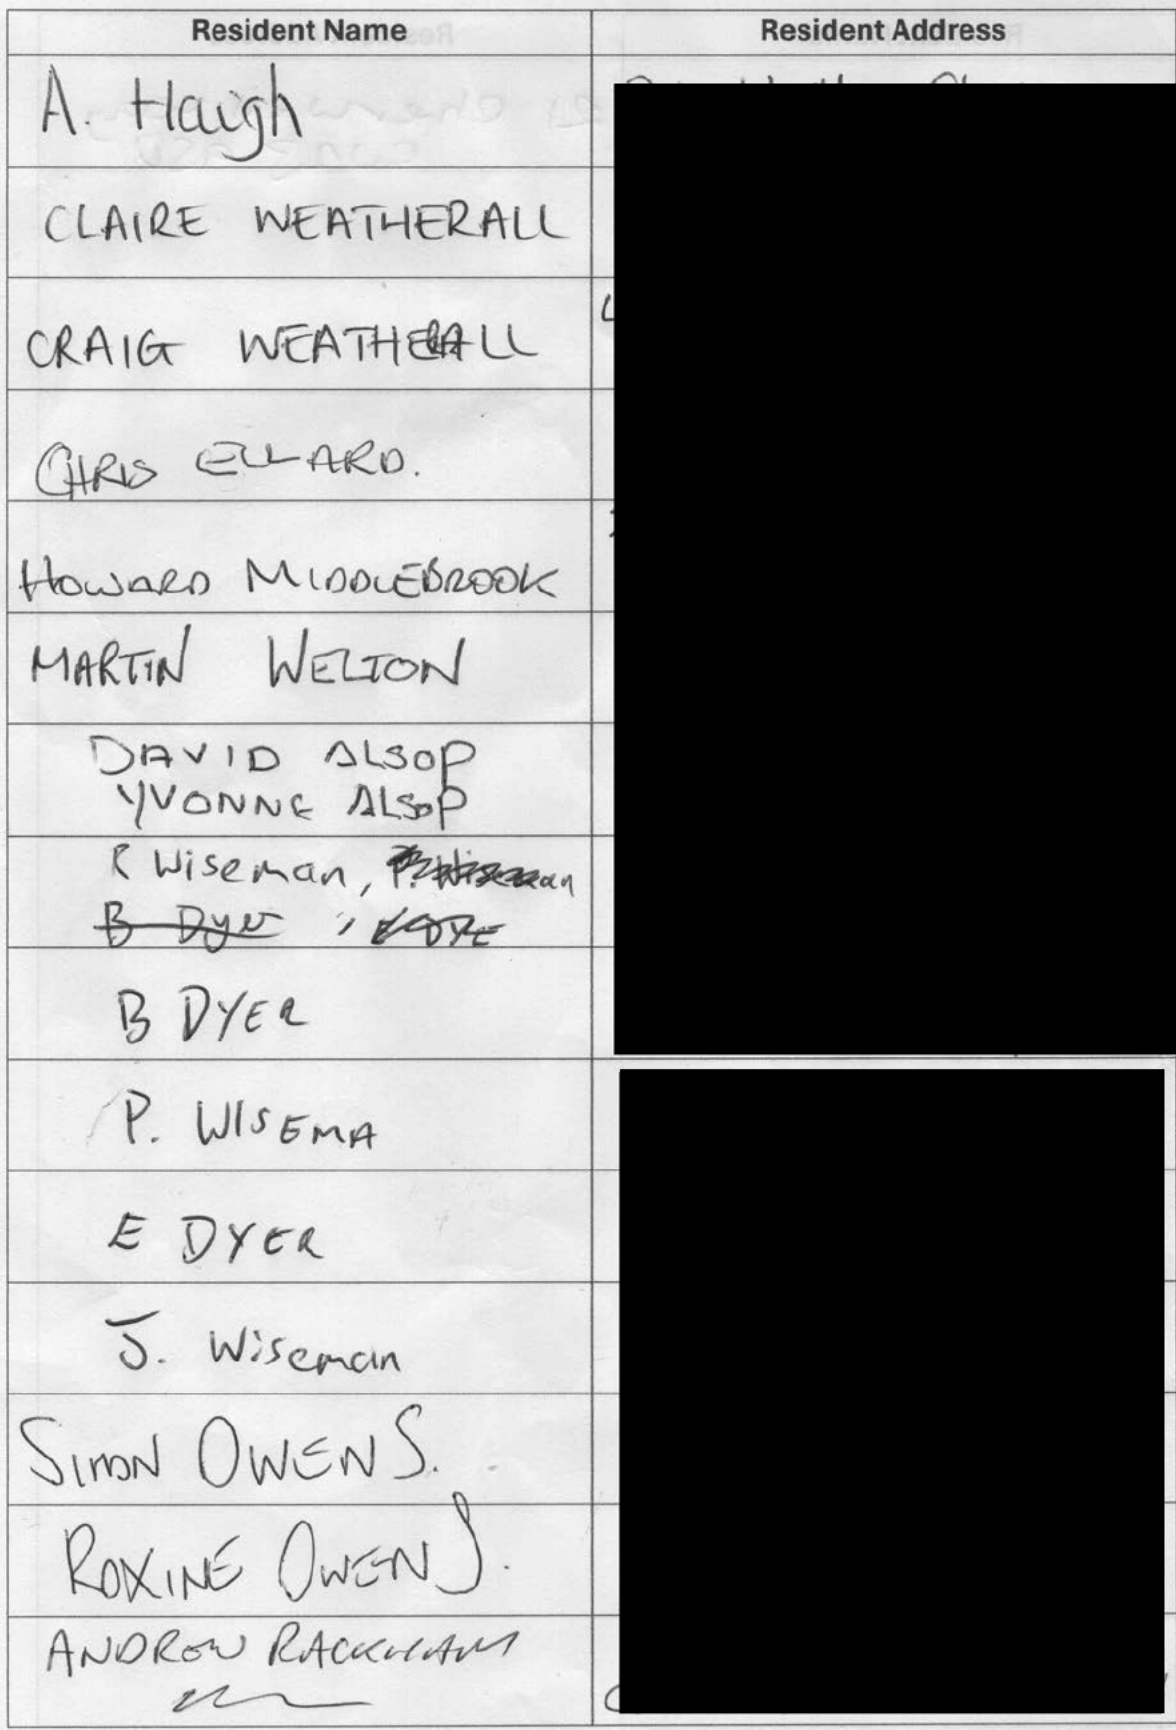 Resident Name Resident Address
A. Haigh
CLAIRE WEATHERALL
CRAIG WEATHERALL
CHRIS ELLARD.
HOWARD MIDDLEBROOK
MARTIN WELTON
DAVID ALSOP
YVONNE ALSOP
R Wiseman, P. Wiseman
B Dyer
B DYER
P. WISEMA
E DYER
J. Wiseman
SIMON OWENS.
ROXINE OWENS.
ANDREW RACKHAM